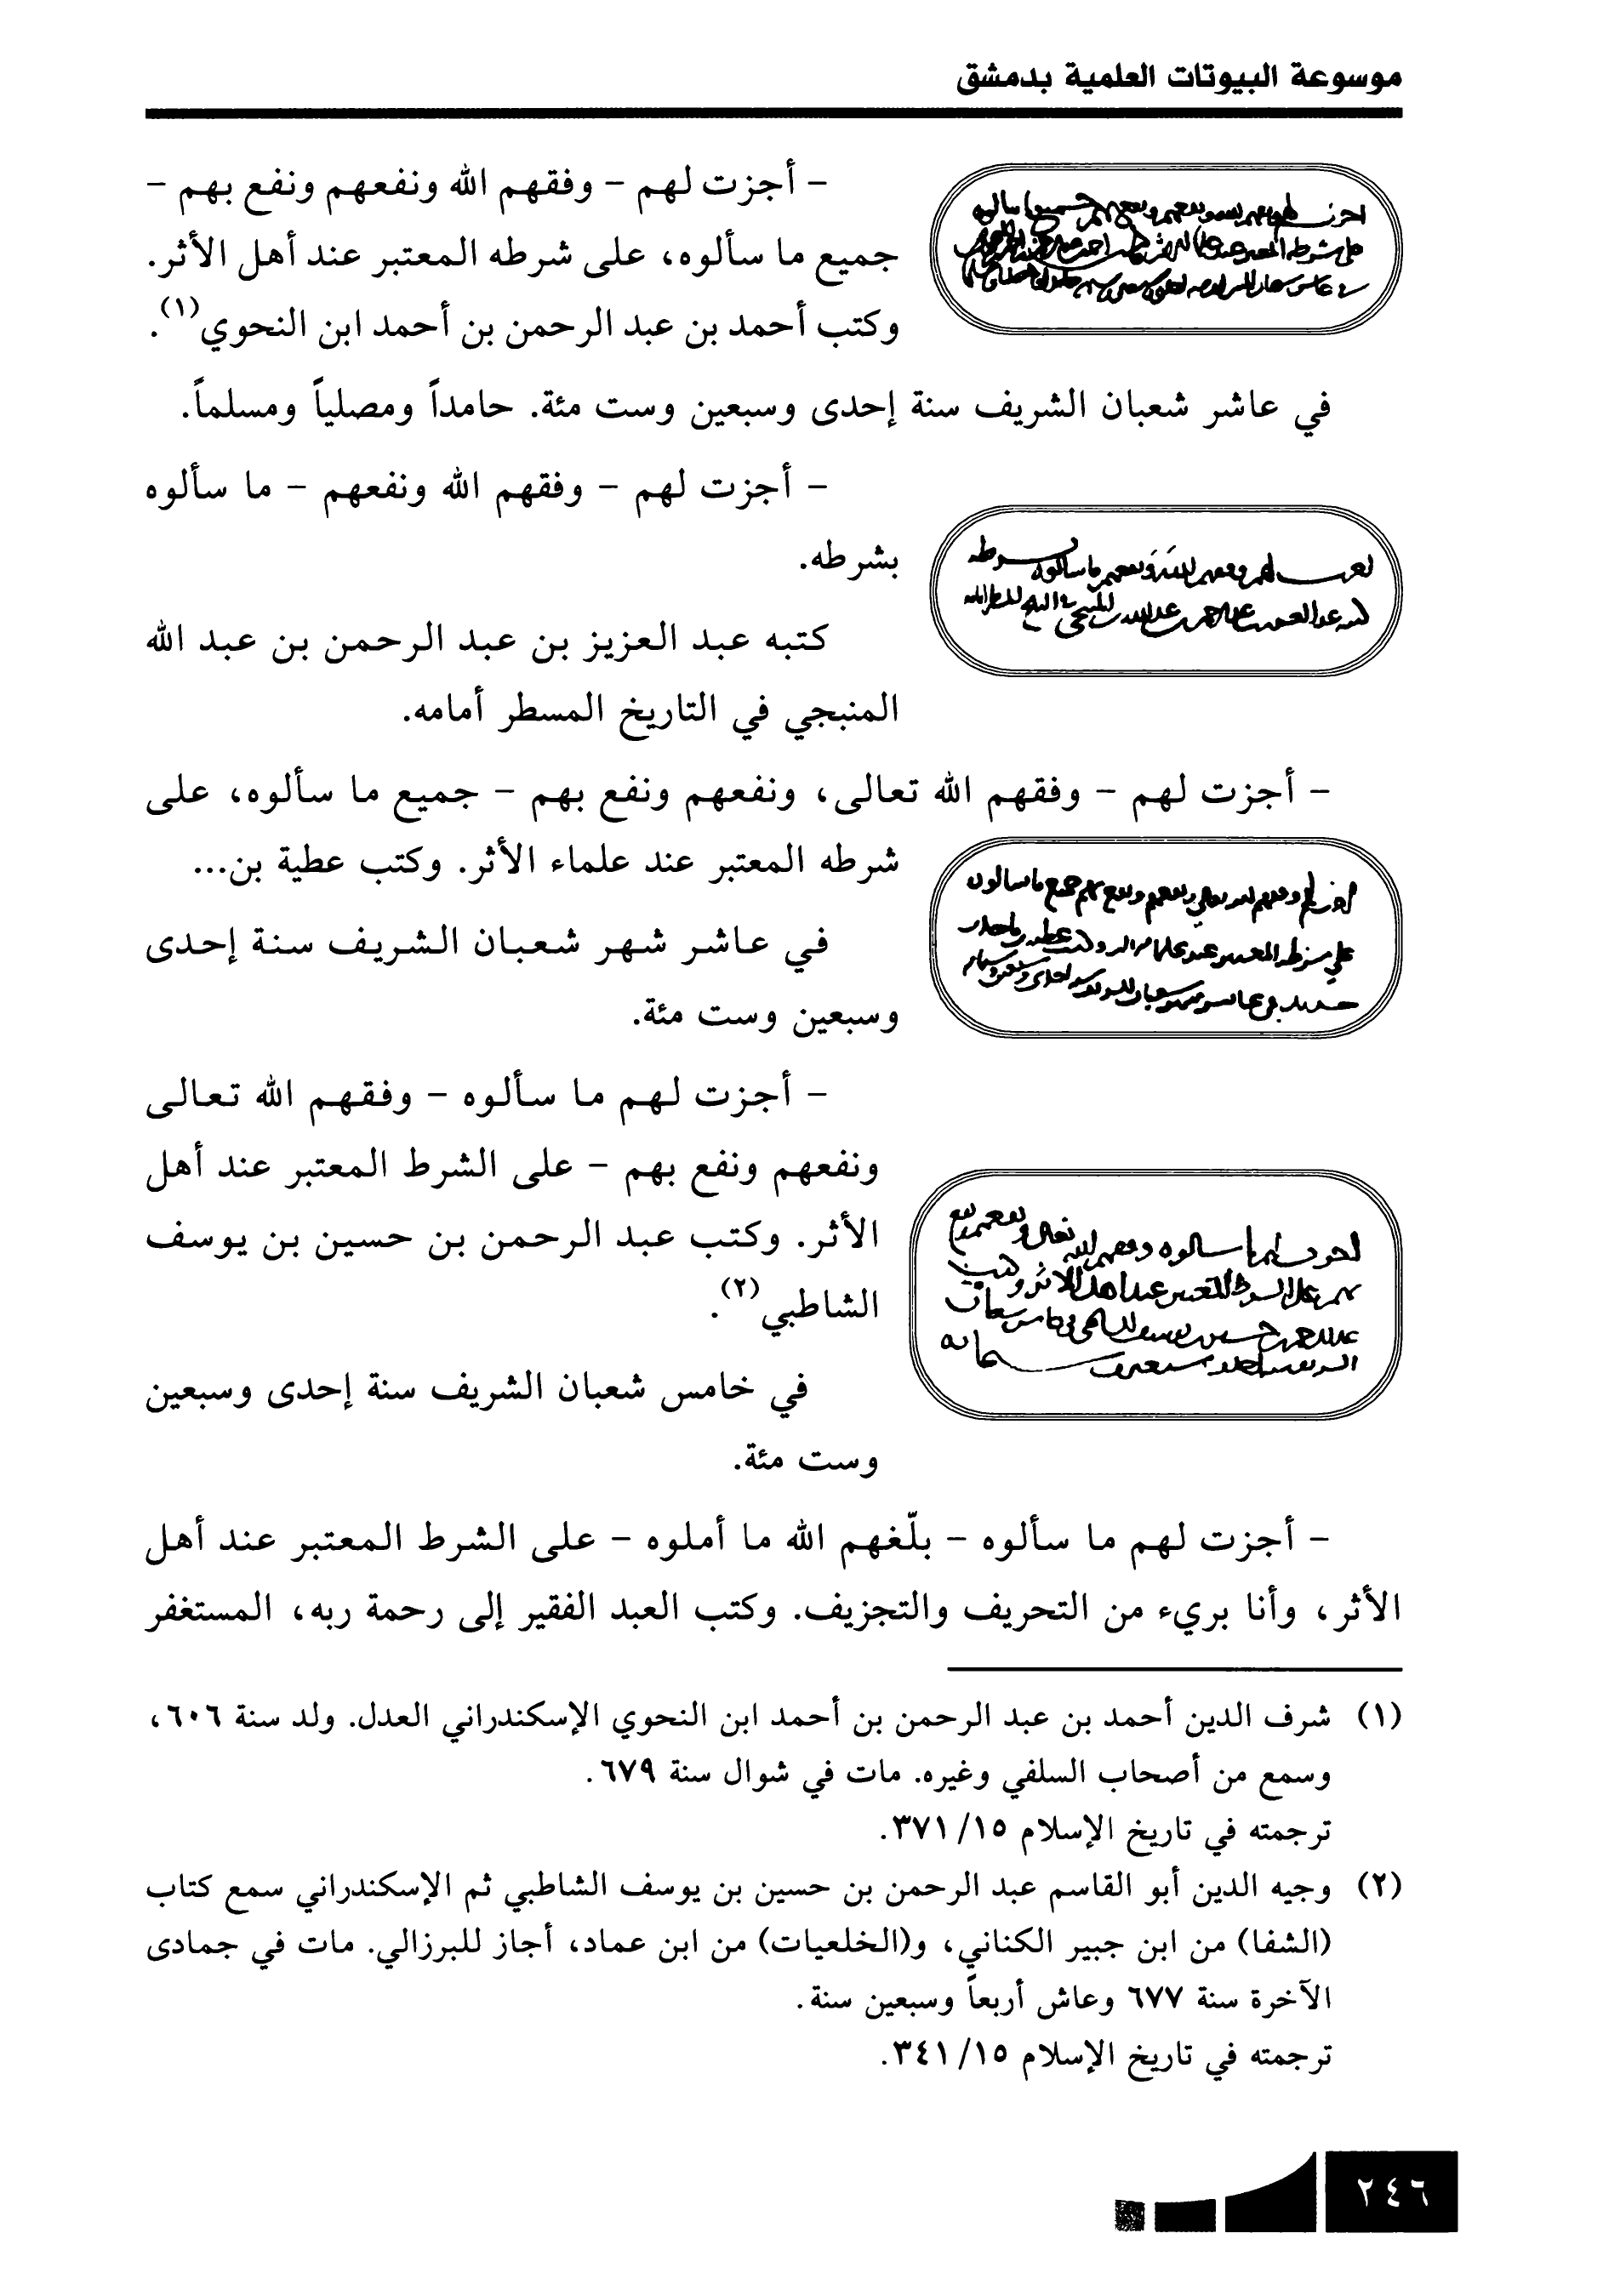 موسوعة البيوتات العلمية بدمشق
- أجزت لهم - وفقهم الله ونفعهم ونفع بهم -
جميع ما سألوه، على شرطه المعتبر عند أهل الأثر.
وكتب أحمد بن عبد الرحمن بن أحمد ابن النحوي(١).
في عاشر شعبان الشريف سنة إحدى وسبعين وست مئة. حامداً ومصلياً ومسلماً.
- أجزت لهم - وفقهم الله ونفعهم - ما سألوه
بشرطه.
كتبه عبد العزيز بن عبد الرحمن بن عبد الله
المنبجي في التاريخ المسطر أمامه.
- أجزت لهم - وفقهم الله تعالى، ونفعهم ونفع بهم - جميع ما سألوه، على
شرطه المعتبر عند علماء الأثر. وكتب عطية بن...
في عاشر شهر شعبان الشريف سنة إحدى
وسبعين وست مئة.
- أجزت لهم ما سألوه - وفقهم الله تعالى
ونفعهم ونفع بهم - على الشرط المعتبر عند أهل
الأثر. وكتب عبد الرحمن بن حسين بن يوسف
الشاطبي(٢).
في خامس شعبان الشريف سنة إحدى وسبعين
وست مئة.
- أجزت لهم ما سألوه - بلّغهم الله ما أملوه - على الشرط المعتبر عند أهل
الأثر، وأنا بريء من التحريف والتجزيف. وكتب العبد الفقير إلى رحمة ربه، المستغفر
(١) شرف الدين أحمد بن عبد الرحمن بن أحمد ابن النحوي الإسكندراني العدل. ولد سنة ٦٠٦،
وسمع من أصحاب السلفي وغيره. مات في شوال سنة ٦٧٩.
ترجمته في تاريخ الإسلام ١٥/ ٣٧١.
(٢) وجيه الدين أبو القاسم عبد الرحمن بن حسين بن يوسف الشاطبي ثم الإسكندراني سمع كتاب
(الشفا) من ابن جبير الكناني، و(الخلعيات) من ابن عماد، أجاز للبرزالي. مات في جمادى
الآخرة سنة ٦٧٧ وعاش أربعاً وسبعين سنة.
ترجمته في تاريخ الإسلام ١٥/ ٣٤١.
٢٤٦